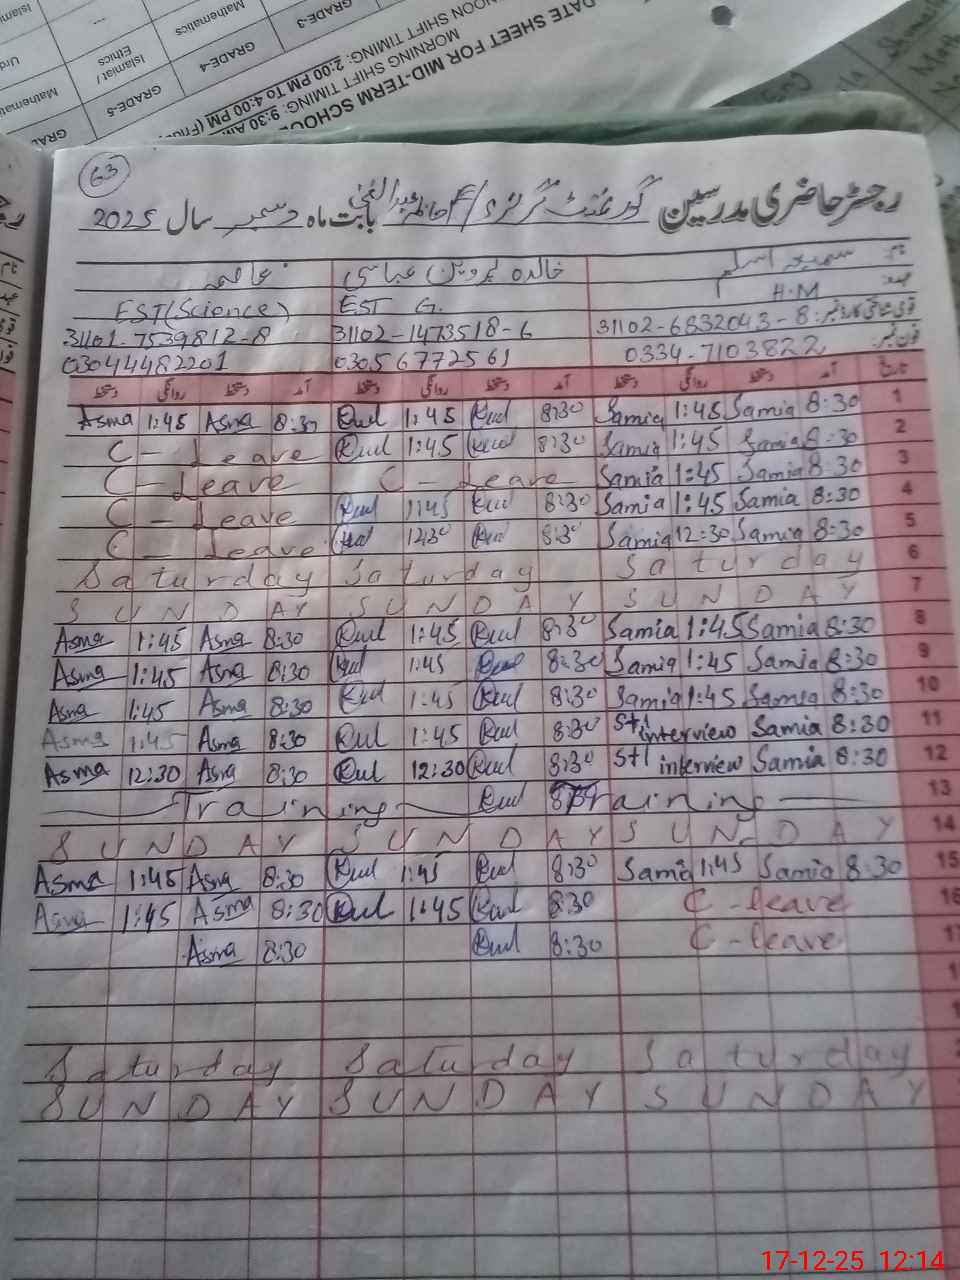 GRADE-3
Mathematics
GRADE-4
Islamiat /
Ethics
GRADE-5
DATE SHEET FOR MID-TERM SCHOO
MORNING SHIFT TIMING: 9:30 AM
NOON SHIFT TIMING: 2:00 PM To 4:00 PM
63
رجسٹر حاضری مدرسین گورنمنٹ گرلز بابت ماہ دسمبر سال 2025
نام سمیعہ اسلم خالدہ پروین عباسی عاصمہ
عہدہ: H.M EST G. EST(Science)
قومی شناختی کارڈ نمبر: 31102-6832043-8 31102-1473518-6 31101-7539812-8
فون نمبر: 0334-7103822 03056772561 03044482201
تاریخ آمد دستخط روانگی دستخط آمد دستخط روانگی دستخط آمد دستخط روانگی دستخط
Asma 1:45 Asma 8:30 1:45 8:30 Samia 1:45 Samia 8:30 1
C - Leave 1:45 8:30 Samia 1:45 Samia 8:30 2
C - Leave C - Leave Samia 1:45 Samia 8:30 3
C - Leave 1:45 8:30 Samia 1:45 Samia 8:30 4
C - Leave 12:30 8:30 Samia 12:30 Samia 8:30 5
Saturday Saturday Saturday 6
SUNDAY SUNDAY SUNDAY 7
Asma 1:45 Asma 8:30 1:45 8:30 Samia 1:45 Samia 8:30 8
Asma 1:45 Asma 8:30 1:45 8:30 Samia 1:45 Samia 8:30 9
Asma 1:45 Asma 8:30 1:45 8:30 Samia 1:45 Samia 8:30 10
Asma 1:45 Asma 8:30 1:45 8:30 STI interview Samia 8:30 11
Asma 12:30 Asma 8:30 12:30 8:30 STI interview Samia 8:30 12
Training Training 13
SUNDAY SUNDAY SUNDAY 14
Asma 1:45 Asma 8:30 1:45 8:30 Samia 1:45 Samia 8:30 15
Asma 1:45 Asma 8:30 1:45 8:30 C - leave 16
Asma 8:30 8:30 C - leave 17
Saturday Saturday Saturday
SUNDAY SUNDAY SUNDAY
17-12-25 12:14